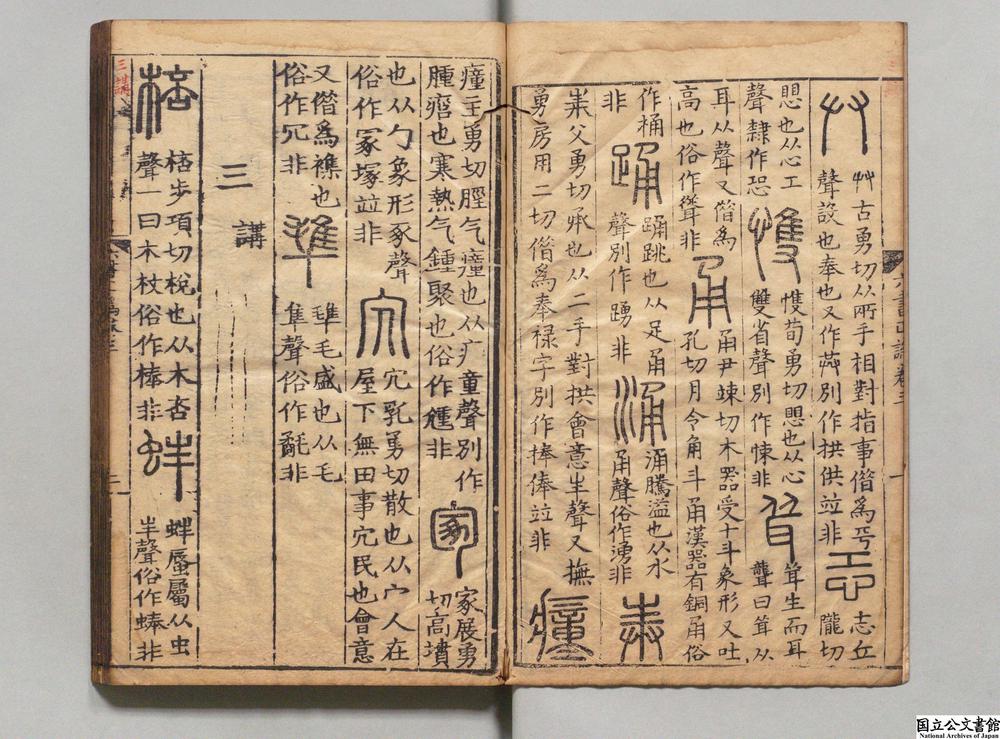 古勇切从兩手相對指事偕爲
聲設也奉也又作別作拱供竝非
志丘
隴切
愳也从心工
聲隸作恐
愯
愯荀勇切愳也从心
雙省聲別作悚非
耸生而耳
聾曰耸从
耳从聲又偕爲
高也俗作聳非
甬
甬尹竦切木器受十斗象形又吐
孔切月令角斗甬漢器有銅甬俗
作桶
非
踊
踊跳也从足甬
聲別作踴非
涌
涌騰溢也从水
甬聲俗作湧非
奉
父勇切承也从二手對拱會意半聲又撫
勇房用二切偕爲奉祿字別作捧俸竝非
瘇
六書正譌卷三
瘇主勇切脛气瘇也从疒童聲別作
腫也寒熱气鍾聚也俗作非
冢展勇
切高墳
也从勹象形豕聲
俗作冢塚竝非
宂
宂乳勇切散也从宀人在
屋下無田事宂民也會意
又偕爲襍也
俗作冗非
毛盛也从毛
隼聲俗作氄非
三講
棓
棓步項切梲也从木咅
聲一曰木杖俗作棒非
蚌
蚌蜃屬从虫
聲俗作蜯非
三講
国立公文書館
National Archives of Japan